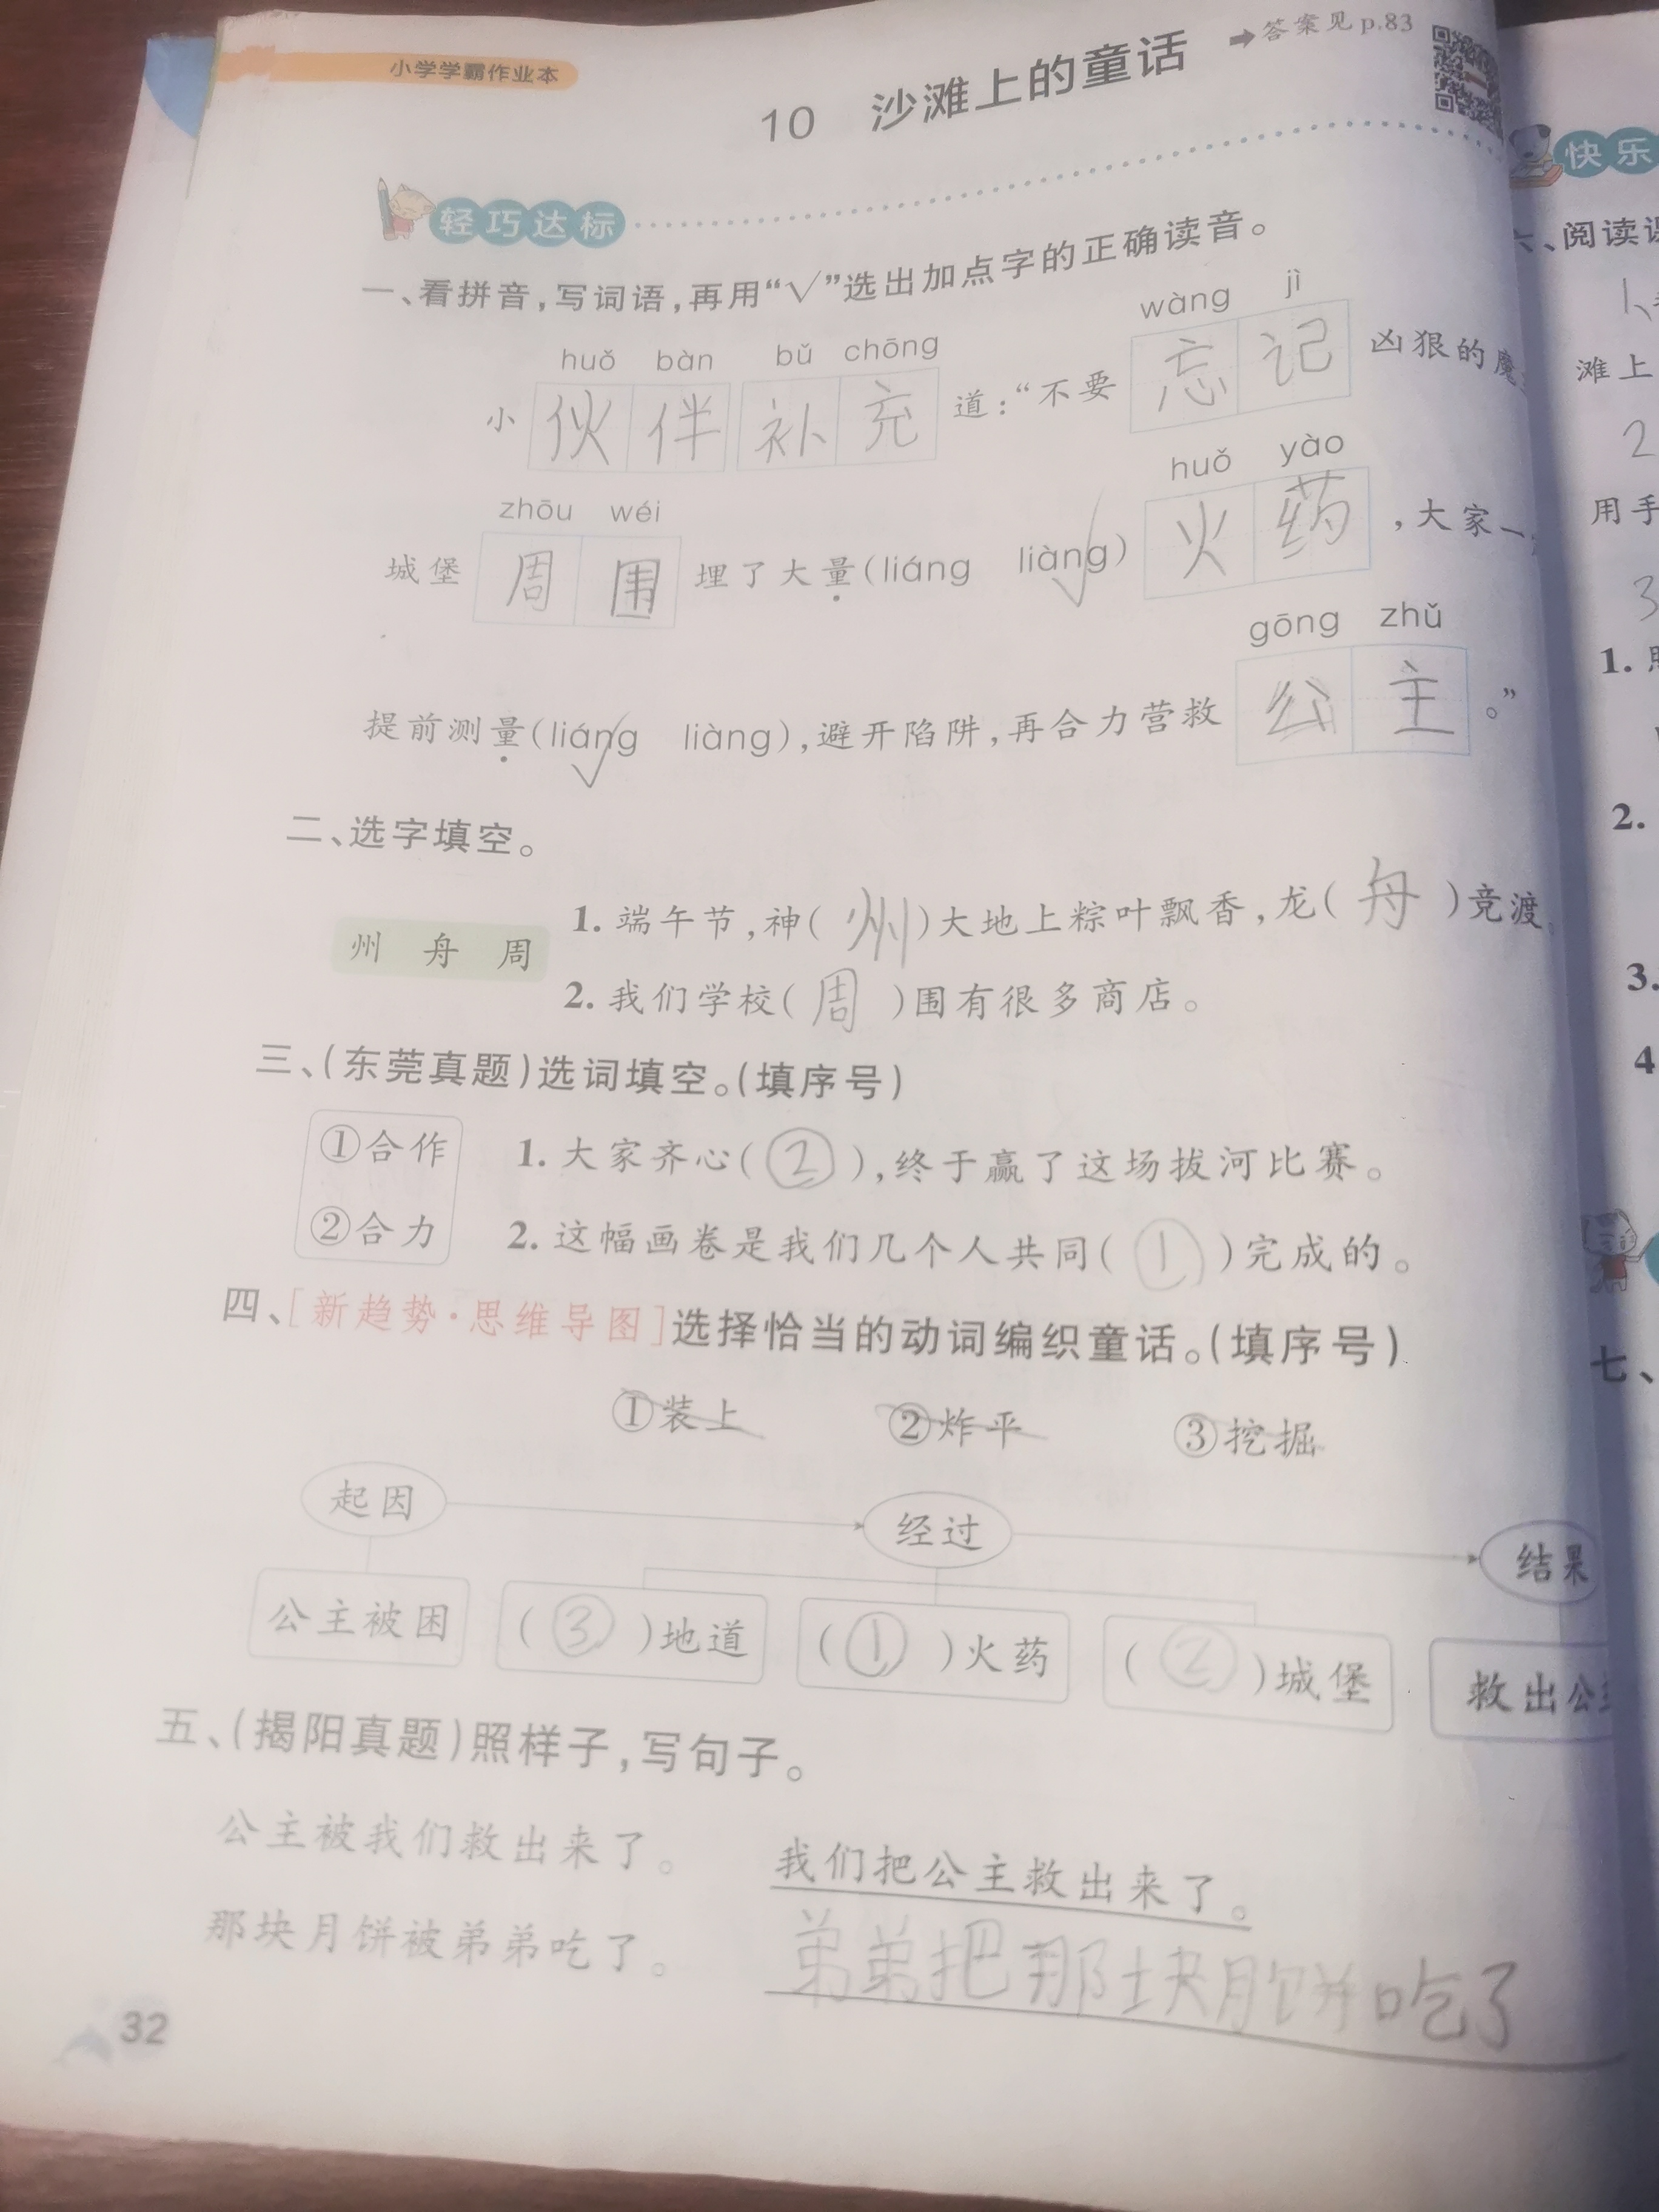 小学学霸作业本
10 沙滩上的童话
➡答案见p.83
轻巧达标
一、看拼音,写词语,再用“√”选出加点字的正确读音。
huǒ bàn bǔ chōng wàng jì
小伙伴补充道:“不要忘记凶狠的魔
zhōu wéi huǒ yào
城堡周围埋了大量(liáng liàng√)火药,大家一
gōng zhǔ
提前测量(liáng√ liàng),避开陷阱,再合力营救公主。”
二、选字填空。
州 舟 周
1. 端午节,神(州)大地上粽叶飘香,龙(舟)竞渡。
2. 我们学校(周)围有很多商店。
三、(东莞真题)选词填空。(填序号)
①合作
②合力
1. 大家齐心(②),终于赢了这场拔河比赛。
2. 这幅画卷是我们几个人共同(①)完成的。
四、[新趋势·思维导图]选择恰当的动词编织童话。(填序号)
①装上 ②炸平 ③挖掘
起因 经过 结果
公主被困 (③)地道 (①)火药 (②)城堡 救出公
五、(揭阳真题)照样子,写句子。
公主被我们救出来了。 我们把公主救出来了。
那块月饼被弟弟吃了。 弟弟把那块月饼吃了
32
快乐
六、阅读
滩上
2
用手
3
1.
2.
3.
4
七、